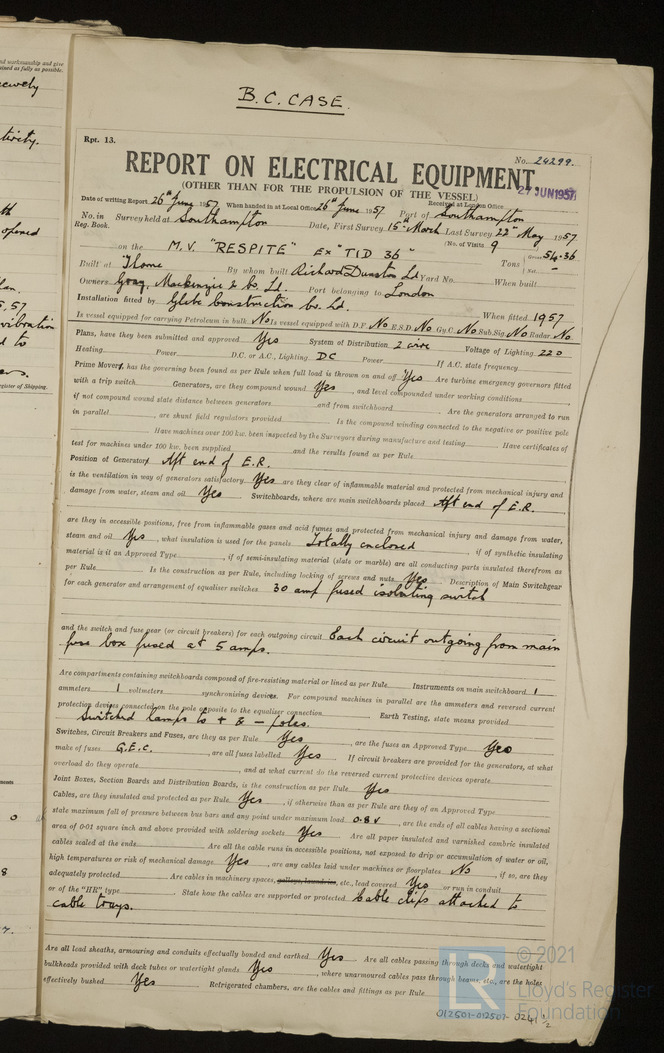 B.C. CASE.
Rpt. 13.
No. 24299.
REPORT ON ELECTRICAL EQUIPMENT
(OTHER THAN FOR THE PROPULSION OF THE VESSEL)
27 JUN 1957
Date of writing Report 26th June 1957 When handed in at Local Office 26th June 1957 Port of Southampton
Received at London Office
No. in Reg. Book. Survey held at Southampton Date, First Survey 15th March Last Survey 22nd May 1957
(No. of Visits 9
on the M.V. "RESPITE" Ex "TID 36" Tons Gross 54.36
Net -
Built at Thorne By whom built Richard Dunston Ld Yard No. When built
Owners Gray, Mackenzie & Co. Ld. Port belonging to London
Installation fitted by Globe Construction Co. Ld. When fitted 1957
Is vessel equipped for carrying Petroleum in bulk No Is vessel equipped with D.F. No E.S.D. No Gy.C. No Sub.Sig. No Radar No
Plans, have they been submitted and approved Yes System of Distribution 2 wire Voltage of Lighting 220
Heating Power D.C. or A.C., Lighting DC Power If A.C. state frequency
Prime Movers, has the governing been found as per Rule when full load is thrown on and off Yes Are turbine emergency governors fitted
with a trip switch Generators, are they compound wound Yes, and level compounded under working conditions
if not compound wound state distance between generators and from switchboard Are the generators arranged to run
in parallel, are shunt field regulators provided Is the compound winding connected to the negative or positive pole
Have machines over 100 kw. been inspected by the Surveyors during manufacture and testing Have certificates of
test for machines under 100 kw. been supplied and the results found as per Rule
Position of Generators Aft end of E.R.
is the ventilation in way of generators satisfactory Yes are they clear of inflammable material and protected from mechanical injury and
damage from water, steam and oil Yes Switchboards, where are main switchboards placed Aft end of E.R.
are they in accessible positions, free from inflammable gases and acid fumes and protected from mechanical injury and damage from water,
steam and oil Yes, what insulation is used for the panels Totally enclosed, if of synthetic insulating
material is it an Approved Type, if of semi-insulating material (slate or marble) are all conducting parts insulated therefrom as
per Rule Is the construction as per Rule, including locking of screws and nuts Yes Description of Main Switchgear
for each generator and arrangement of equaliser switches 30 amp fused isolating switch
and the switch and fuse gear (or circuit breakers) for each outgoing circuit Each circuit outgoing from main
fuse box fused at 5 amps.
Are compartments containing switchboards composed of fire-resisting material or lined as per Rule Instruments on main switchboard 1
ammeters 1 voltmeters synchronising devices. For compound machines in parallel are the ammeters and reversed current
protection devices connected on the pole opposite to the equaliser connection Earth Testing, state means provided
Switched lamps to + & - poles.
Switches, Circuit Breakers and Fuses, are they as per Rule Yes, are the fuses an Approved Type Yes
make of fuses G.E.C., are all fuses labelled Yes If circuit breakers are provided for the generators, at what
overload do they operate, and at what current do the reversed current protective devices operate
Joint Boxes, Section Boards and Distribution Boards, is the construction as per Rule Yes
Cables, are they insulated and protected as per Rule Yes, if otherwise than as per Rule are they of an Approved Type
state maximum fall of pressure between bus bars and any point under maximum load 0.8 V, are the ends of all cables having a sectional
area of 0·01 square inch and above provided with soldering sockets Yes Are all paper insulated and varnished cambric insulated
cables sealed at the ends Are all the cable runs in accessible positions, not exposed to drip or accumulation of water or oil,
high temperatures or risk of mechanical damage Yes, are any cables laid under machines or floorplates No, if so, are they
adequately protected Are cables in machinery spaces, galleys, laundries, etc., lead covered Yes or run in conduit
or of the "HR" type State how the cables are supported or protected Cable clips attached to
cable trays.
Are all lead sheaths, armouring and conduits effectually bonded and earthed Yes Are all cables passing through decks and watertight
bulkheads provided with deck tubes or watertight glands Yes, where unarmoured cables pass through beams, etc., are the holes
effectively bushed Yes Refrigerated chambers, are the cables and fittings as per Rule
© 2021
Lloyd's Register
Foundation
012501-012507-0241 1/2